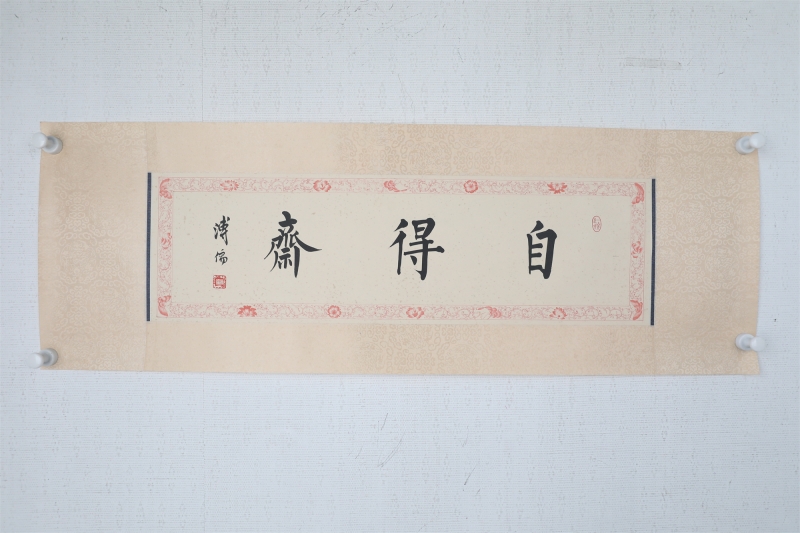 自得齋
溥儒